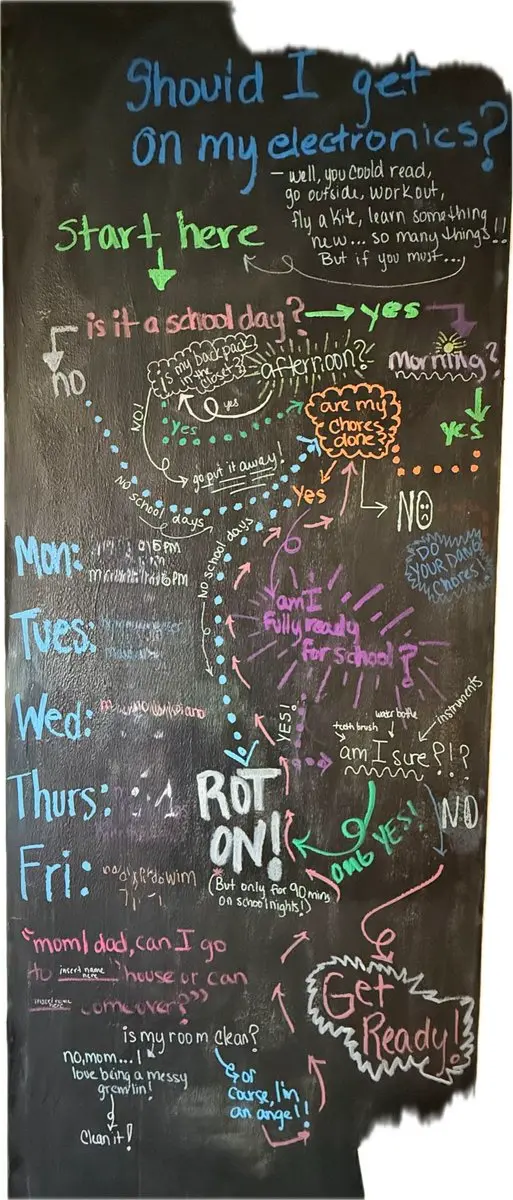 Should I get
on my electronics?
- well, you could read,
go outside, workout,
fly a kite, learn something
new... so many things!!
But if you must...
start here
is it a school day? → yes
no
is my backpack
in the closet?
afternoon?
morning?
yes
NO!
yes
yes
are my
chores
done?
go put it away!
yes
NO
No school days
No school days
DO
YOUR DANG
Chores!
Mon:
Tues:
Wed:
Thurs:
Fri:
am I
fully ready
for school?
YES!
teeth brush
water bottle
instruments
am I sure?!?
NO
OMG YES!
ROT
ON!
*
(But only for 90 mins
on school nights!)
Get
Ready!
"mom/dad, can I go
to insert name here house or can
insert name here come over?"
is my room clean?
no, mom... I
love being a messy
gremlin!
clean it!
or
course, I'm
an angel!!